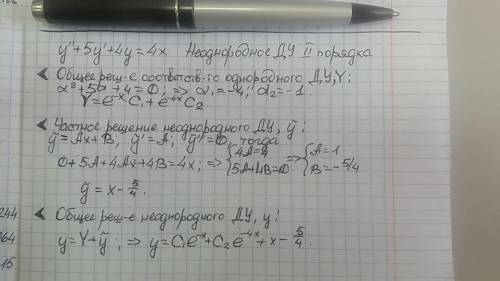 y''+5y'+4y=4x Неоднородное ДУ II порядка
Общее реш-е соответств-го однородного ДУ, Y:
α²+5α+4=0; => α₁=-4; α₂=-1.
Y=e⁻ˣC₁+e⁻⁴ˣC₂.
Частное решение неоднородного ДУ, ỹ:
ỹ=Ax+B, ỹ'=A; ỹ''=0, тогда
0+5A+4Ax+4B=4x; => {4A=4 5A+4B=0 => {A=1 B=-5/4
ỹ=x-5/4.
Общее реш-е неоднородного ДУ, y:
y=Y+ỹ; => y=C₁e⁻ˣ+C₂e⁻⁴ˣ+x-5/4.
244
264
15